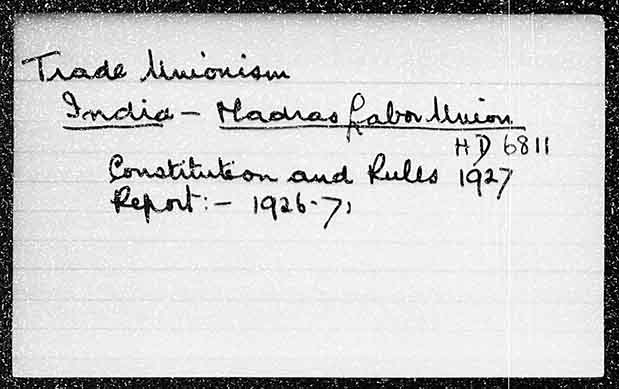 Trade Unionism
India - Madras Labor Union
HD 6811
Constitution and Rules 1927
Report:- 1926-7,